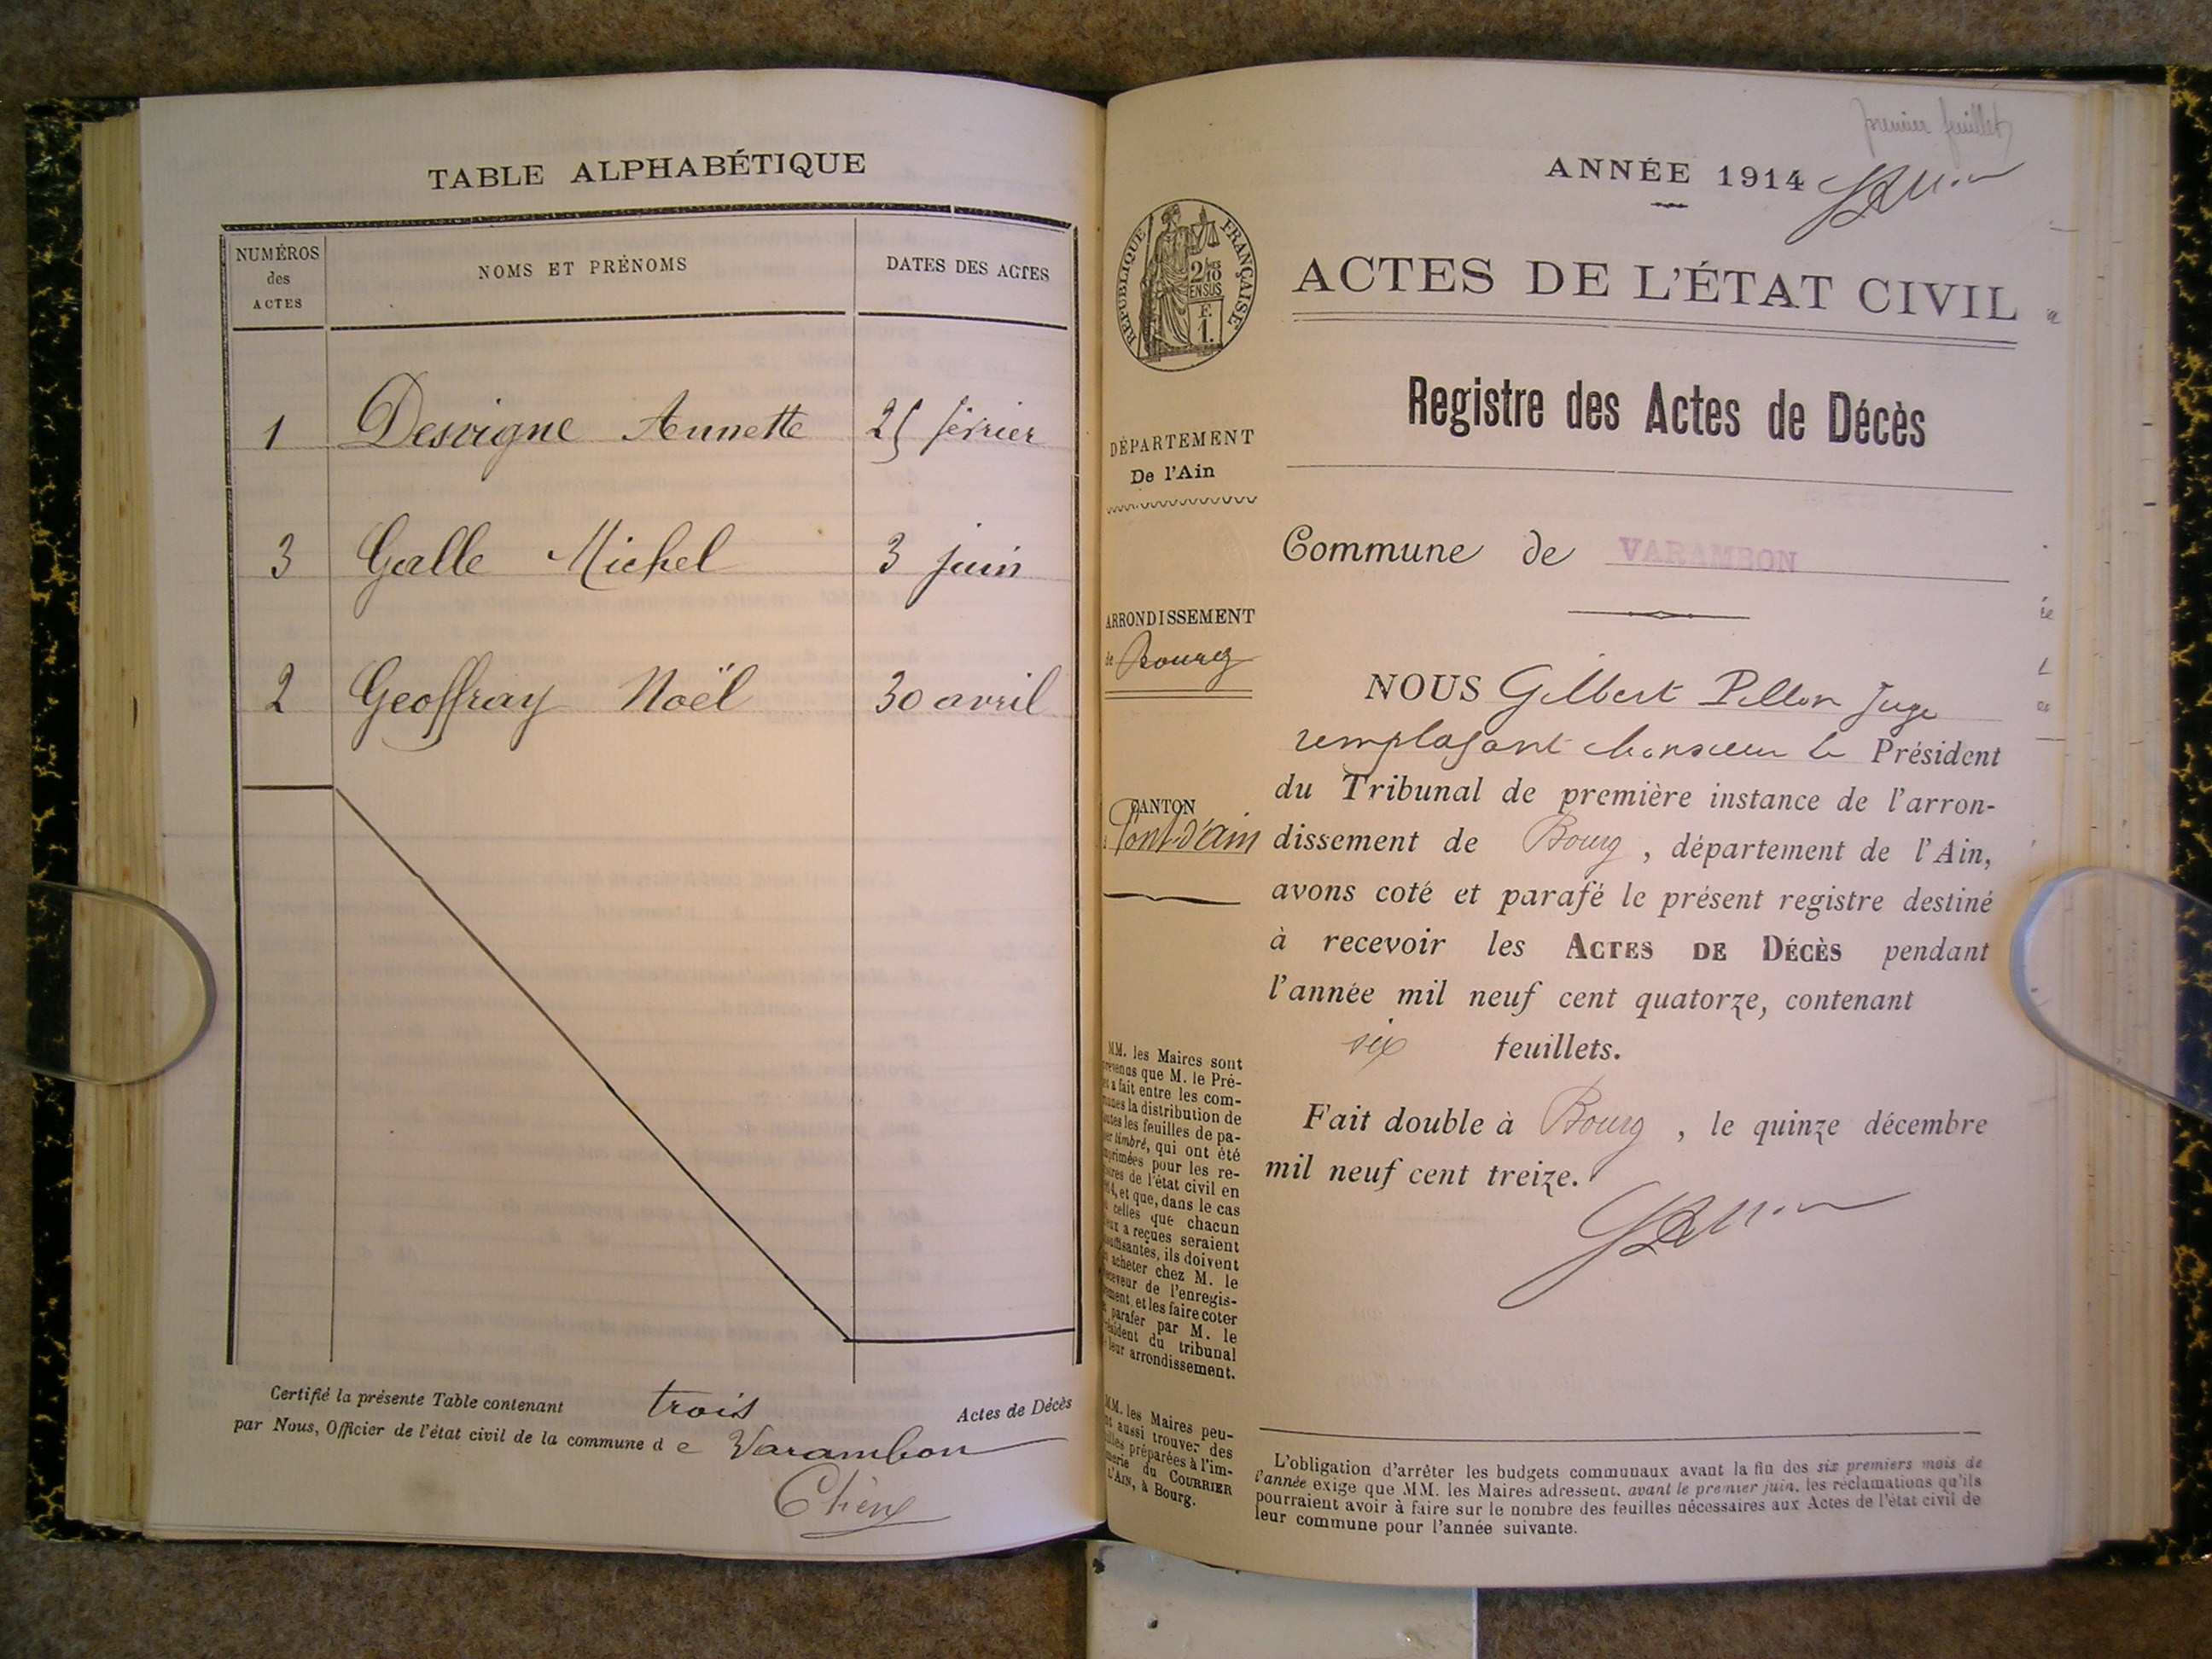 TABLE ALPHABÉTIQUE
NUMÉROS
des
ACTES
NOMS ET PRÉNOMS
DATES DES ACTES
1 Desvigne Annette 25 février
3 Galle Michel 3 juin
2 Geoffray Noël 30 avril
Certifié la présente Table contenant trois Actes de Décès
par Nous, Officier de l'état civil de la commune de Varambon
premier feuillet
ANNÉE 1914
RÉPUBLIQUE FRANÇAISE
2/10
EN SUS
F.
1.
ACTES DE L'ÉTAT CIVIL
Registre des Actes de Décès
DÉPARTEMENT
De l'Ain
Commune de VARAMBON
ARRONDISSEMENT
de Bourg
NOUS Gilbert Pillon Juge
remplaçant Monsieur le Président
du Tribunal de première instance de l'arron-
CANTON
Pont-d'Ain
dissement de Bourg, département de l'Ain,
avons coté et parafé le présent registre destiné
à recevoir les ACTES DE DÉCÈS pendant
l'année mil neuf cent quatorze, contenant
six feuillets.
Fait double à Bourg, le quinze décembre
mil neuf cent treize.
MM. les Maires sont
que M. le Pré-
a fait entre les com-
la distribution de
les feuilles de pa-
timbré, qui ont été
pour les re-
de l'état civil en
et que, dans le cas
celles que chacun
a reçues seraient
ils doivent
acheter chez M. le
de l'enregis-
et les faire coter
parafer par M. le
du tribunal
leur arrondissement.
MM. les Maires peu-
aussi trouver des
préparées à l'im-
du COURRIER
L'AIN, à Bourg.
L'obligation d'arrêter les budgets communaux avant la fin des six premiers mois de
l'année exige que MM. les Maires adressent, avant le premier juin, les réclamations qu'ils
pourraient avoir à faire sur le nombre des feuilles nécessaires aux Actes de l'état civil de
leur commune pour l'année suivante.